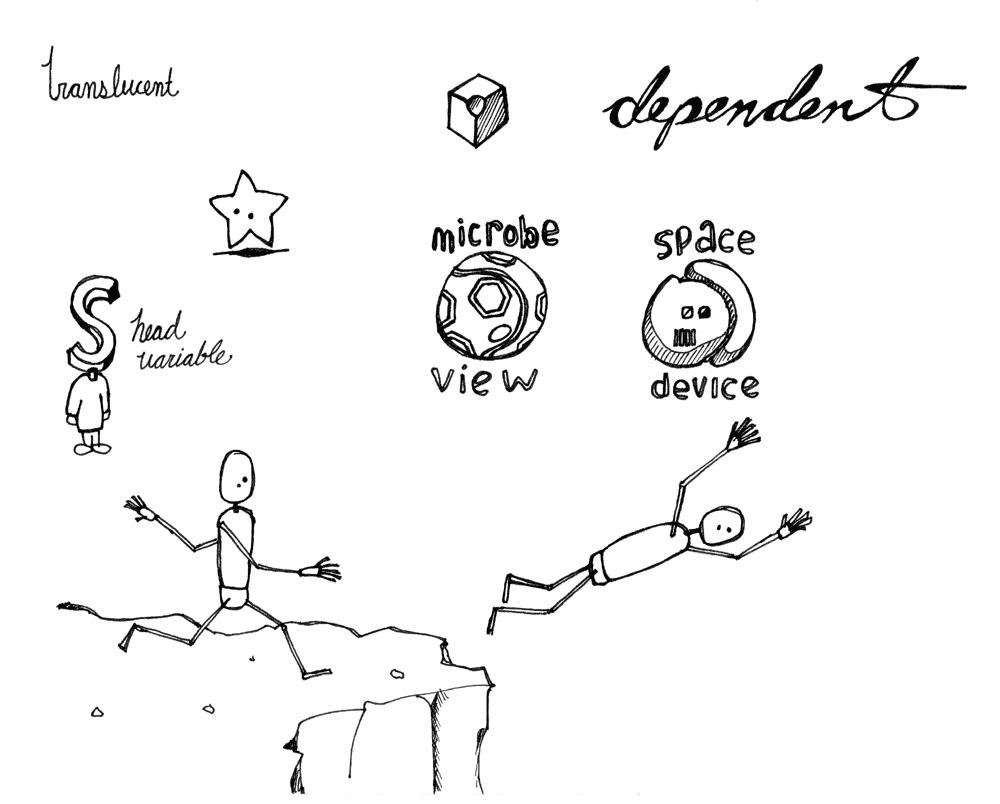 translucent
dependent
microbe
view
space
device
head
variable